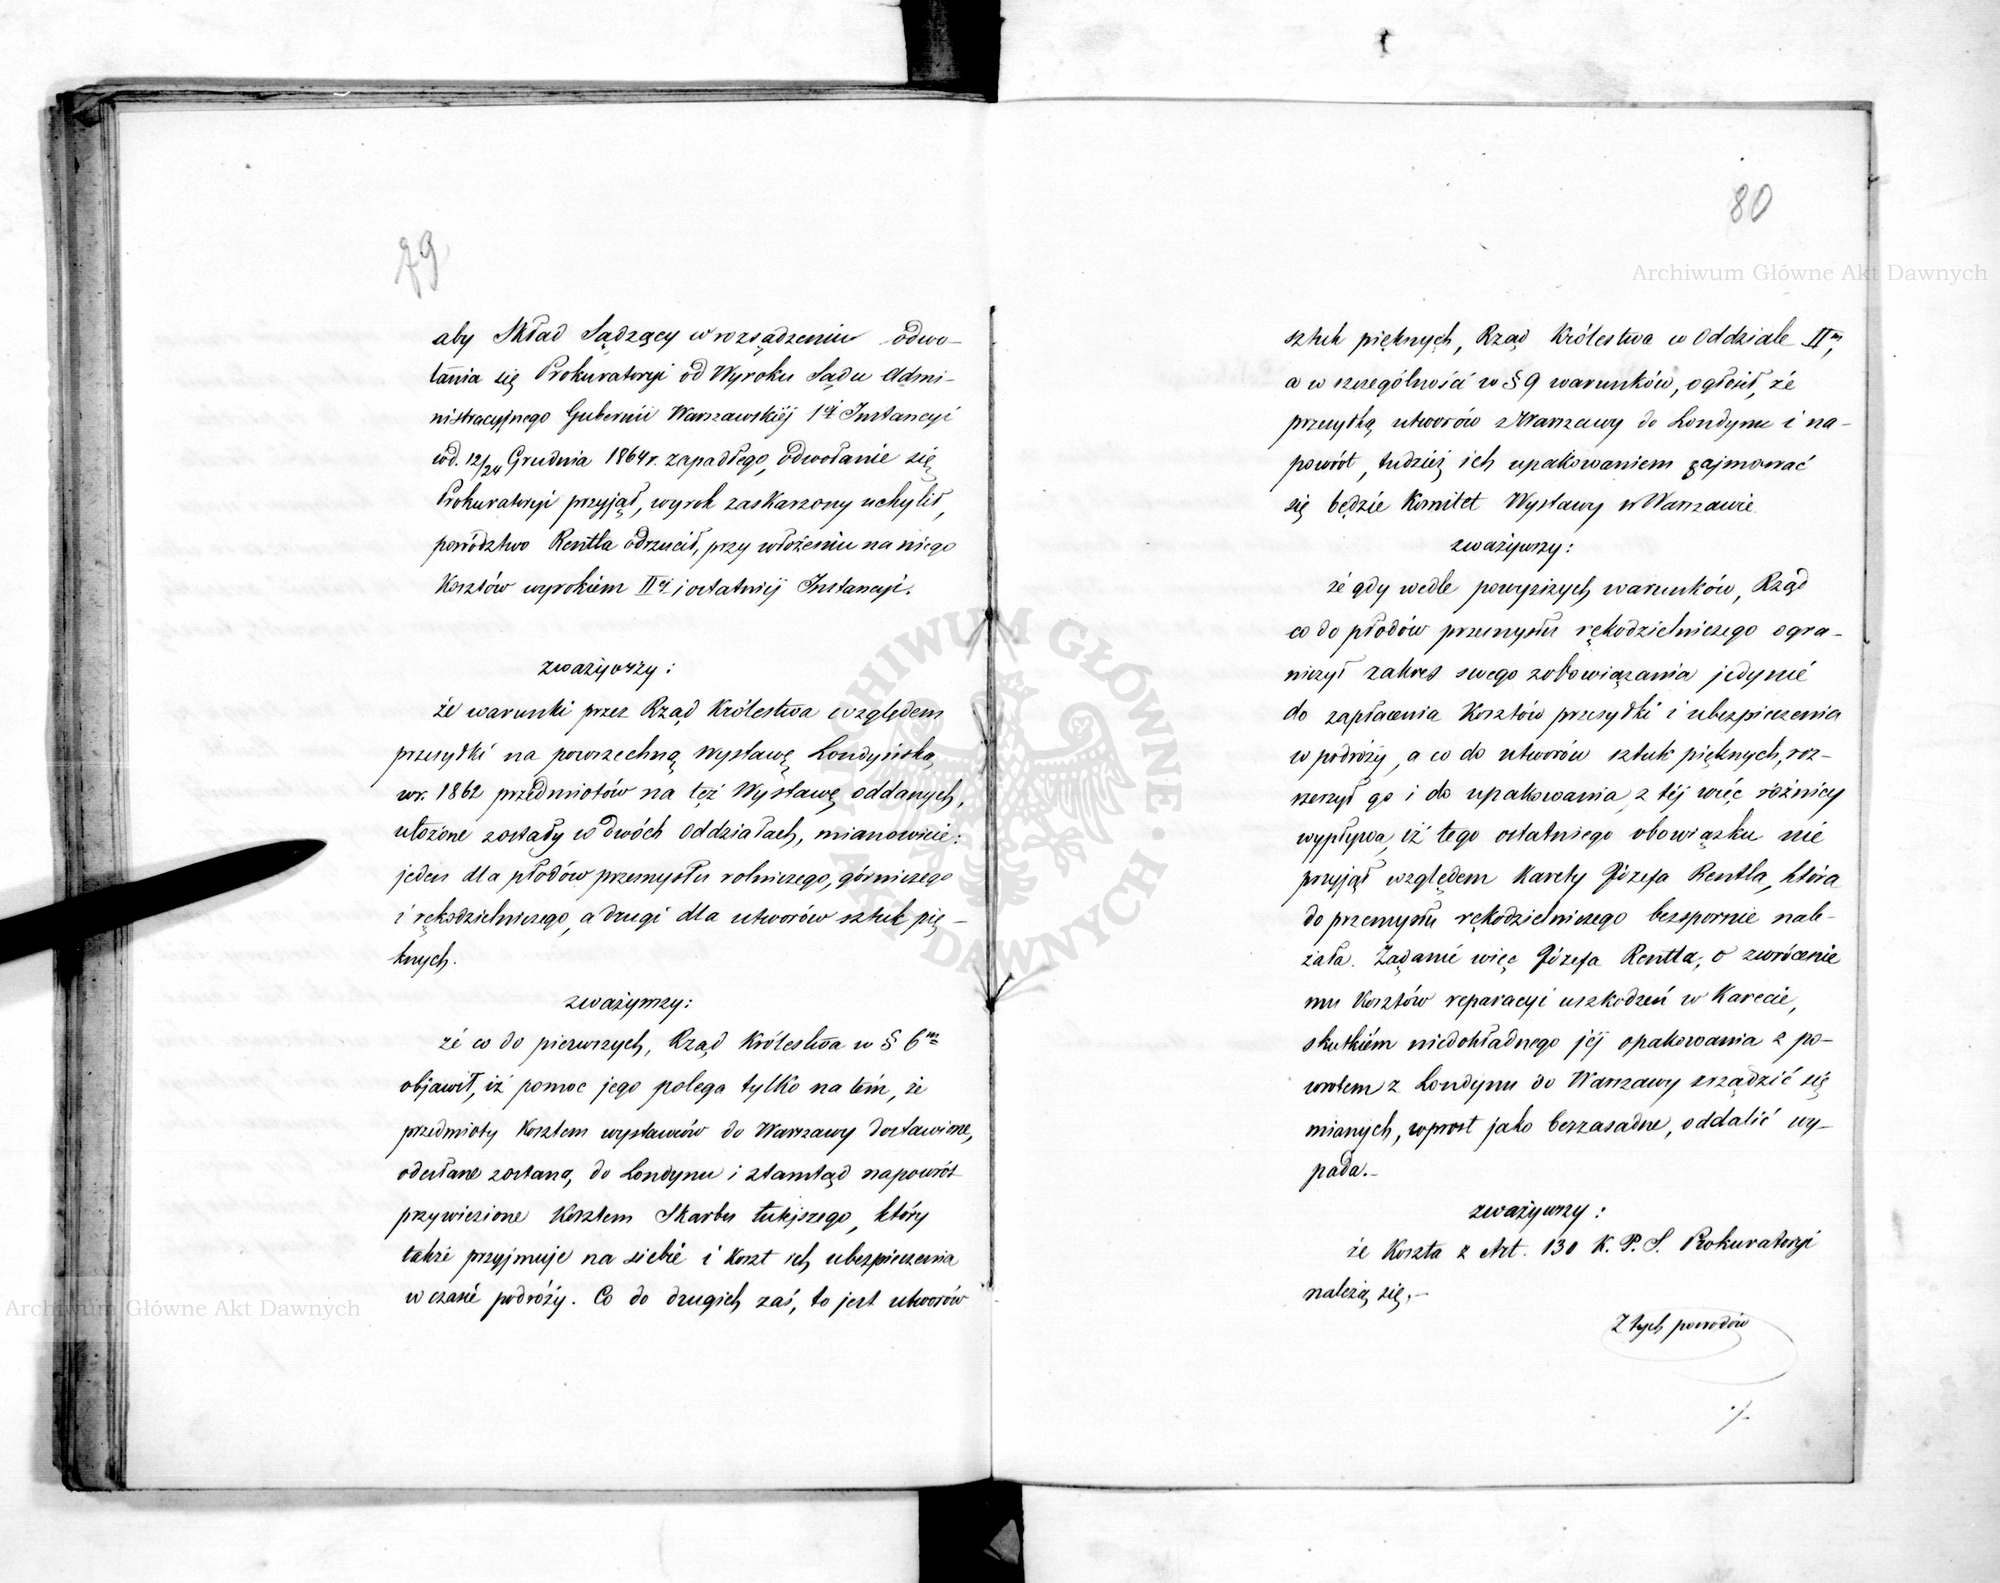 79
aby Skład Sądzący w rozsądzeniu odwo-
łania się Prokuratoryi od Wyroku Sądu Admi-
nistracyjnego Gubernii Warszawskiéj 1éj Instancyi
w d. 12/24 Grudnia 1864 r. zapadłego, odwołanie się
Prokuratoryi przyjął, wyrok zaskarzony uchylił,
powództwo Rentla odrzucił, przy włożeniu na niego
Kosztów wyrokiem IIéj i ostatniéj Instancyi.
zważywszy:
że warunki przez Rząd Królestwa względem
przesyłki na powszechną wystawę Londyńską
w r. 1862 przedmiotów na też Wystawę oddanych,
ułożone zostały w dwóch Oddziałach, mianowicie:
jeden dla płodów przemysłu rolniczego, górniczego
i rękodzielniczego, a drugi dla utworów sztuk pię-
knych.
zważywszy:
że co do pierwszych, Rząd Królestwa w § 6m
objawił, iż pomoc jego polega tylko na tém, że
przedmioty kosztem wystawców do Warszawy dostawione,
odesłane zostaną do Londynu i ztamtąd napowrót
przywiezione kosztem Skarbu tutejszego, który
także przyjmuje na siebie i koszt ich ubezpieczenia
w czasie podróży. Co do drugich zaś, to jest utworów
80
sztuk pięknych, Rząd Królestwa w Oddziale IIm,
a w szczególności w § 9 warunków, ogłosił, że
przesyłką utworów z Warszawy do Londynu i na-
powrót, tudzież ich upakowaniem zajmować
się będzie Komitet Wystawy w Warszawie.
zważywszy:
że gdy wedle powyższych warunków, Rząd
co do płodów przemysłu rękodzielniczego ogra-
niczył zakres swego zobowiązania jedynie
do zapłacenia Kosztów przesyłki i ubezpieczenia
w podróży, a co do utworów sztuk pięknych, roz-
szerzył go i do upakowania, z téj więc różnicy
wypływa, iż tego ostatniego obowiązku nie
przyjął względem Karety Józefa Rentla, która
do przemysłu rękodzielniczego bezspornie nale-
żała. Żądanie więc Józefa Rentla, o zwrócenie
mu Kosztów reparacyi uszkodzeń w Karecie,
skutkiém niedokładnego jéj opakowania z po-
wrotem z Londynu do Warszawy zrządzić się
mianych, wprost jako bezzasadne, oddalić wy-
pada.-
zważywszy:
że Koszta z Art. 130 K. P. S. Prokuratoryi
należą się.-
Z tych powodów
./.
Archiwum Główne Akt Dawnych
Archiwum Główne Akt Dawnych
ARCHIWUM GŁÓWNE AKT DAWNYCH